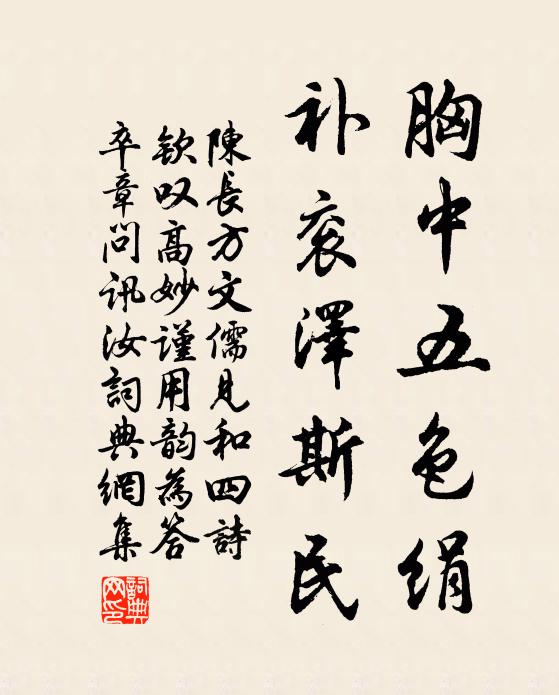 胸中五色绢
补衮泽斯民
陳長方文儒見和四詩
欽叹高妙謹用韵為答
卒章问讯汝詞典網集
詞典網印